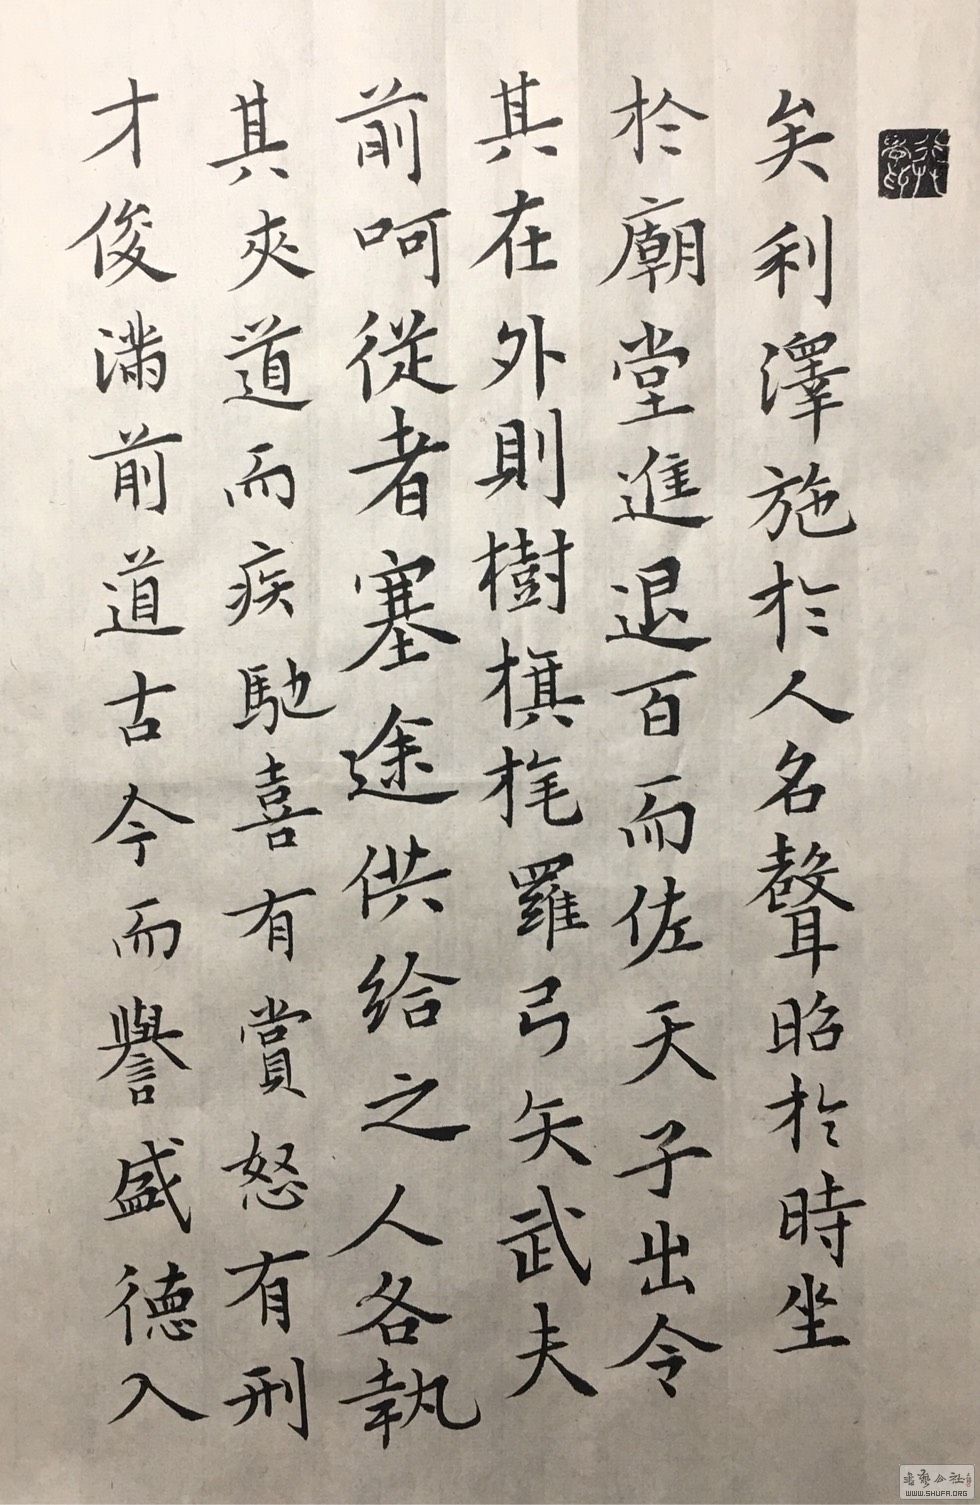 矣利澤施於人名聲昭於時坐
於廟堂進退百而佐天子出令
其在外則樹旗旄羅弓矢武夫
前呵從者塞途供給之人各執
其夾道而疾馳喜有賞怒有刑
才俊满前道古今而譽盛德入
WWW.SHUFA.ORG